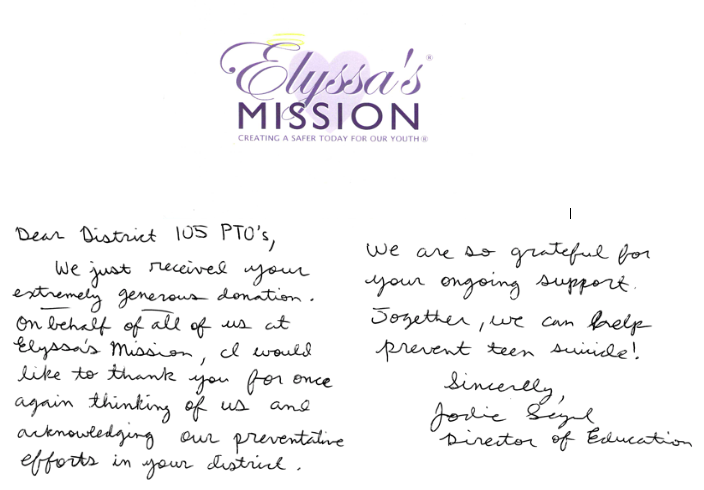 Elyssa's®
MISSION
CREATING A SAFER TODAY FOR OUR YOUTH®
Dear District 105 PTO's,
We just received your
extremely generous donation.
On behalf of all of us at
Elyssa's Mission, I would
like to thank you for once
again thinking of us and
acknowledging our preventative
efforts in your district.
We are so grateful for
your ongoing support.
Together, we can help
prevent teen suicide!
Sincerely,
Jodie Segal
Director of Education